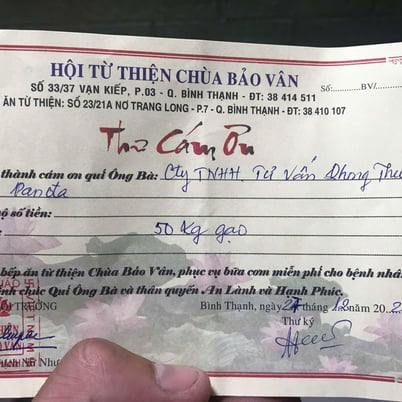 HỘI TỪ THIỆN CHÙA BẢO VÂN
Số:............BV/
SỐ 33/37 VẠN KIẾP, P.03 - Q. BÌNH THẠNH - ĐT: 38 414 511
ĂN TỪ THIỆN: Số 23/21A NƠ TRANG LONG - P.7 - Q. BÌNH THẠNH - ĐT: 38 410 107
Thư Cảm Ơn
thành cám ơn quí Ông Bà: Cty TNHH Tư Vấn Phong Thu
Panda
ộ số tiền:
50 Kg gạo
bếp ăn từ thiện Chùa Bảo Vân, phục vụ bữa cơm miễn phí cho bệnh nhân
ính chúc Quí Ông Bà và thân quyến An Lành và Hạnh Phúc.
Bình Thạnh, ngày 27 tháng 12 năm 20
I TRƯỞNG
Thư ký